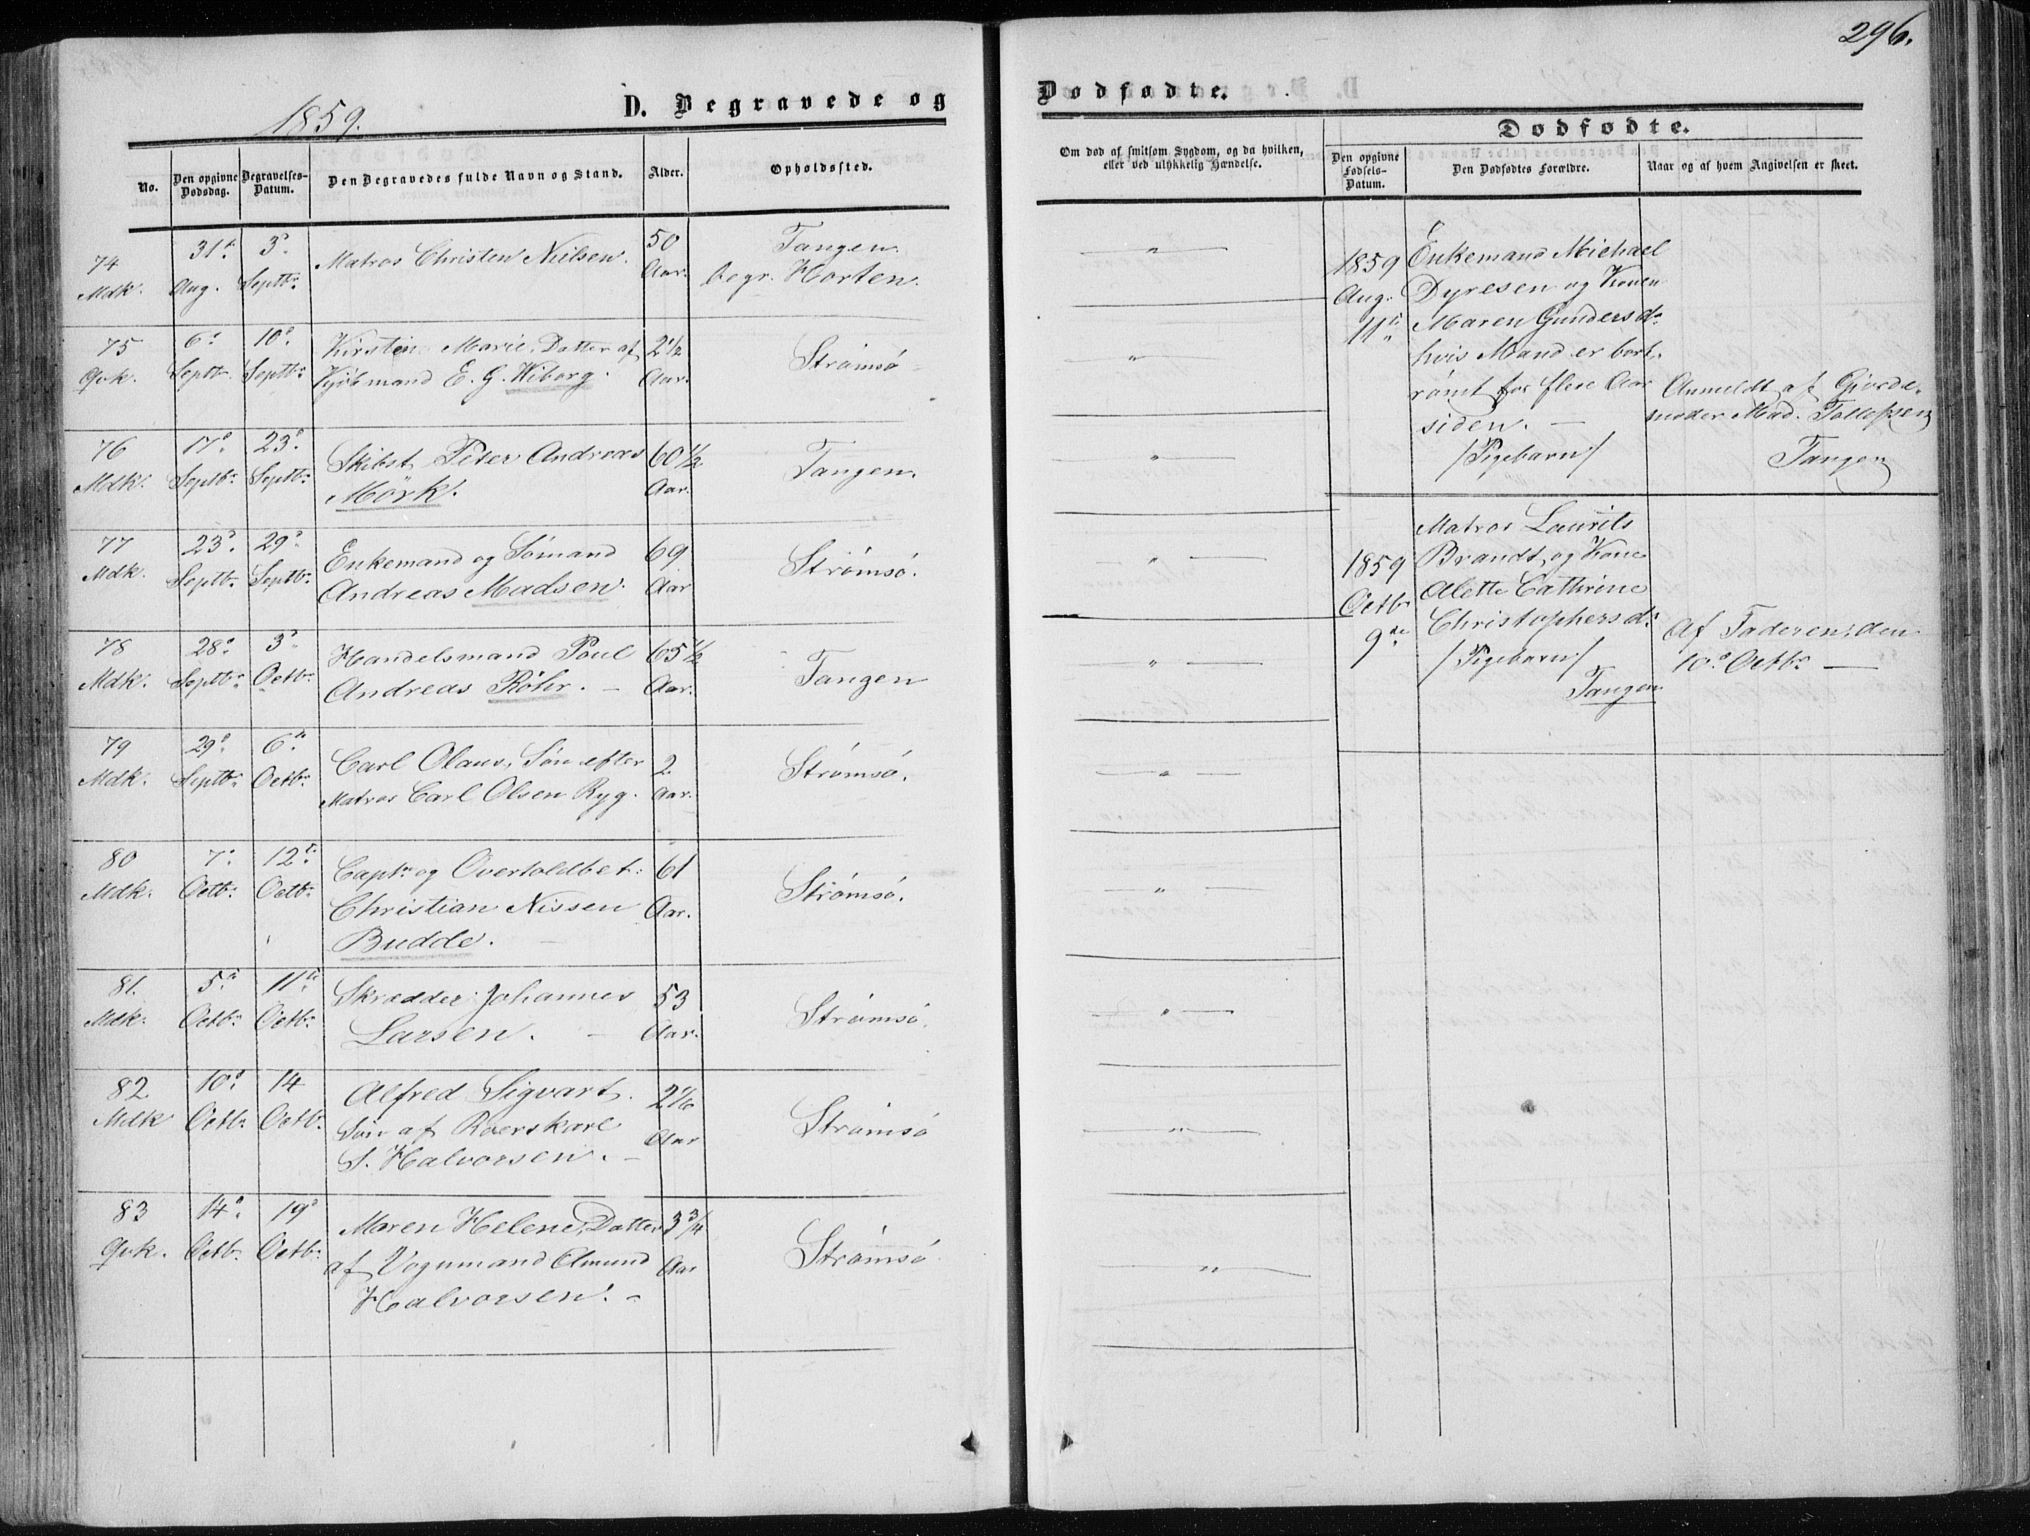 296.
1859.
D. Begravede og
Dødfødte.
No.
Den opgivne Dødsdag.
Begravelses-Datum.
Den Begravedes fulde Navn og Stand.
Alder.
Opholdssted.
Om død af smitsom Sygdom, og da hvilken, eller ved ulykkelig Hændelse.
Dødfødte.
Den opgivne Fødsels-Datum.
Den Dødfødtes Forældre.
Naar og af hvem Angivelsen er skeet.
74 31te 3die Matros Christen Nielsen. 50 Tangen.
Mdk. Aug. Septbr. Aar. begr. Horten.
75 6te 10de Kirsten Marie, Datter af 2½ Strømsø
Qvk. Septb. Septbr. Kjøbmand E. G. Wiborg. Aar.
76 17de 23de Skibst. Peter Andreas 60½ Tangen.
Mdk. Septbr. Septbr. Mörk. Aar.
77 23de 29de Enkemand og Sømand 69 Strømsø.
Mdk. Septbr. Septbr. Andreas Madsen. Aar
78 28de 3die Handelsmand Poul 65½ Tangen
Mdk. Septbr. Octbr. Andreas Röhr. Aar.
79 29de 6te Carl Olaus, Søn efter 2 Strømsø.
Mdk. Septbr. Octbr. Matros Carl Olsen Ryg. Aar.
80 7de 12te Captn. og Overtoldbet. 61 Strømsø.
Mdk. Octbr. Octbr. Christian Nissen Aar.
Budde.
81. 5te 11te Skrædder Johannes 53 Strømsø.
Mdk. Octbr. Octbr. Larsen. Aar.
82 10de 14 Alfred Sigvart. 2 1/6 Strømsø
Mdk Octbr. Octbr. Søn af Roerskarl Aar
S. Halvorsen.
83 14de 19de Maren Helene, Datter 3¾ Strømsø
Qvk. Octbr. Octbr. af Vognmand Amund Aar
Halvorsen.
1859 Enkemand Michael
Aug. Dyresen og Konen
11te Maren Gundersdr.
hvis Mand er bort-
rømt for flere Aar
siden.
/Pigebarn/
Anmeldt af Gjorde-
moder Mad. Tollefsen
Tangen
Matros Laurits
1859 Brandt og Kone
Octbr. Alette Cathrine
9de Christophersdr.
/Pigebarn/
Tangen
Af Faderen den
10de Octbr.